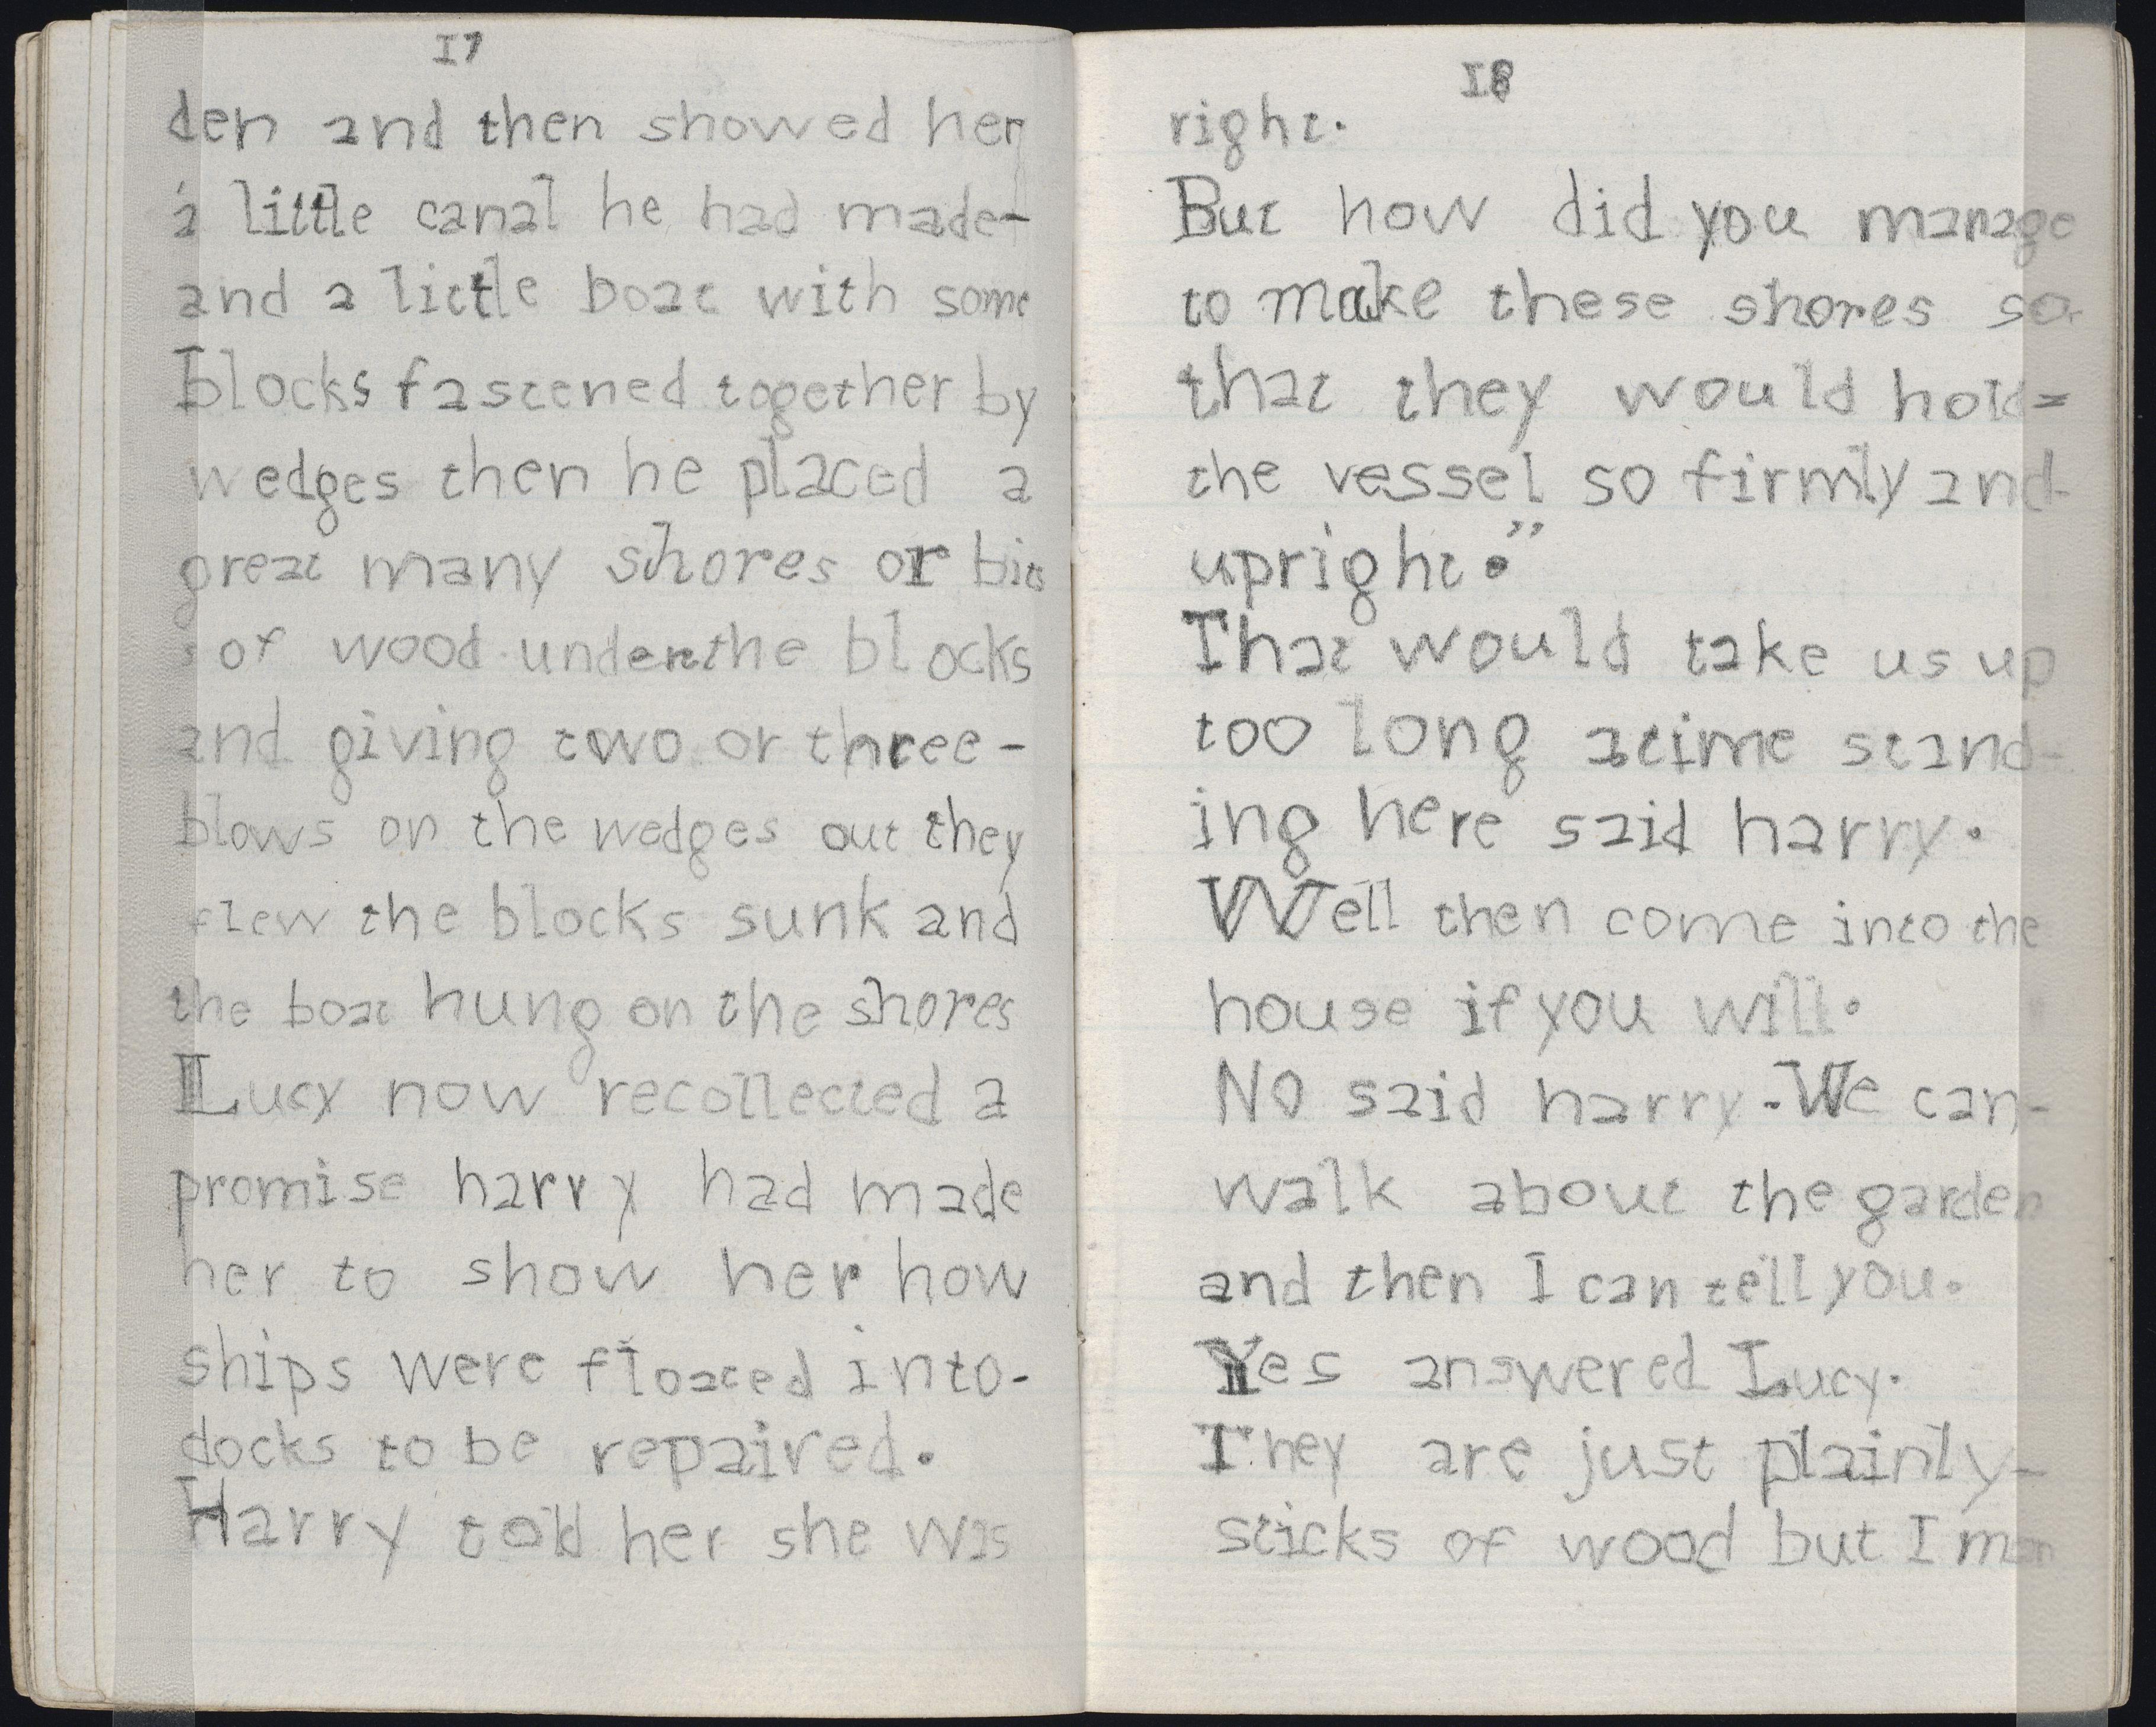 17
den and then showed her
a little canal he had made-
and a little boat with some
blocks fastened together by
wedges then he placed a
great many shores or bit
s of wood under the blocks
and giving two or three-
blows on the wedges out they
flew the blocks sunk and
the boat hung on the shores
Lucy now recollected a
promise harry had made
her to show her how
ships were floated into-
docks to be repaired.
Harry told her she was
18
right.
But how did you manage
to make these shores so
that they would hold=
the vessel so firmly and-
upright."
That would take us up
too long atime stand-
ing here said harry.
Well then come into the
house if you will.
No said harry. We can-
walk about the garden
and then I can tell you.
Yes answered Lucy.
They are just plainly-
sticks of wood but I man